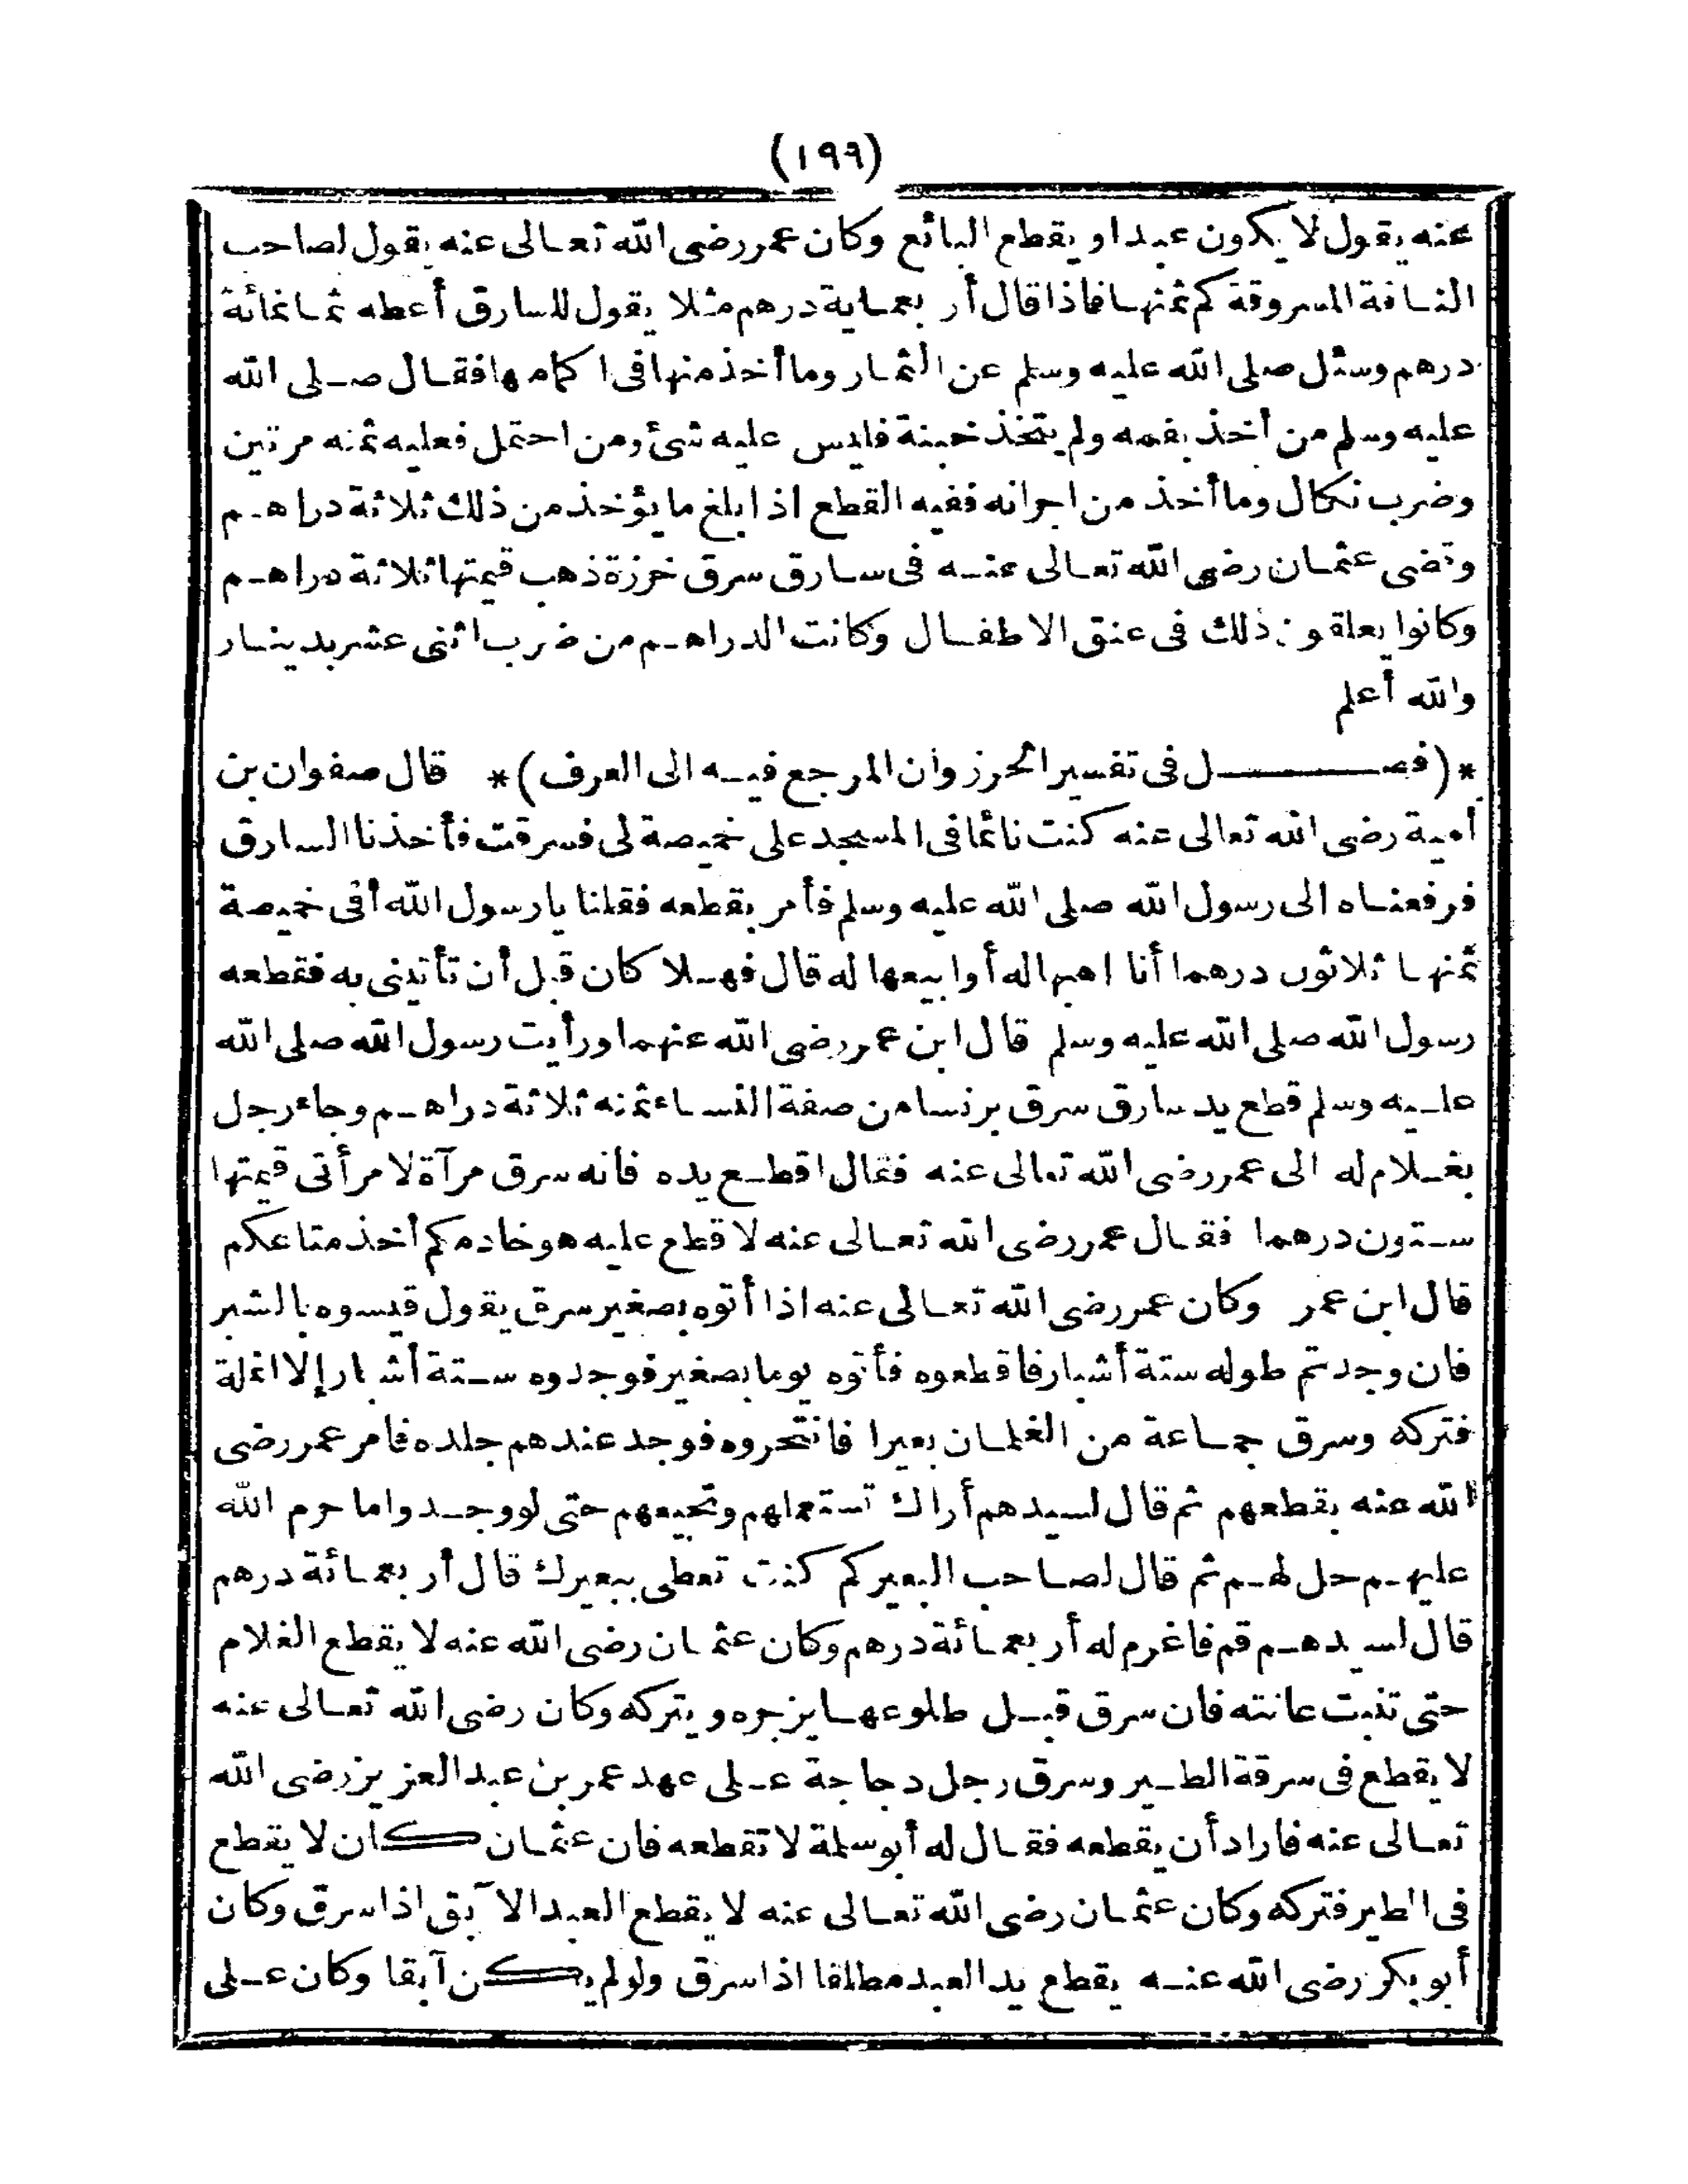 (١٩٩)
عنه يقول لا يكون عبدا ويقطع البائع وكان عمر رضى الله تعالى عنه يقول لصاحب
الناقة المسروقة كم ثمنها فاذا قال أر بعماية درهم مثلا يقول للسارق أعطه ثمانمائة
درهم وسئل صلى الله عليه وسلم عن الثمار وما أخذ منها فى اكمامها فقال صلى الله
عليه وسلم من أخذ بفمه ولم يتخذ خبنة فليس عليه شئ ومن احتمل فعليه ثمنه مرتين
وضرب نكال وما أخذ من اجرانه ففيه القطع اذا بلغ ما يؤخذ من ذلك ثلاثة دراهم
وقضى عثمان رضى الله تعالى عنه فى سارق سرق خرزة ذهب قيمتها ثلاثة دراهم
وكانوا يعلقون ذلك فى عنق الاطفال وكانت الدراهم من ضرب اثنى عشر بدينار
والله أعلم
*(فصل فى تفسير الحرز وان المرجع فيه الى العرف)* قال صفوان بن
أمية رضى الله تعالى عنه كنت نائما فى المسجد على خميصة لى فسرقت فأخذنا السارق
فرفعناه الى رسول الله صلى الله عليه وسلم فأمر بقطعه فقلنا يا رسول الله أفى خميصة
ثمنها ثلاثون درهما أنا اهبها له أوابيعها له قال فهلا كان قبل أن تأتينى به فقطعه
رسول الله صلى الله عليه وسلم قال ابن عمر رضى الله عنهما ورأيت رسول الله صلى الله
عليه وسلم قطع يد سارق سرق برنسا من صفة النساء ثمنه ثلاثة دراهم وجاء رجل
بغلام له الى عمر رضى الله تعالى عنه فقال اقطع يده فانه سرق مرآة لامرأتى قيمتها
ستون درهما فقال عمر رضى الله تعالى عنه لا قطع عليه هو خادمكم أخذ متاعكم
قال ابن عمر وكان عمر رضى الله تعالى عنه اذا أتوه بصغير سرق يقول قيسوه بالشبر
فان وجدتم طوله ستة أشبار فاقطعوه فأتوه يوما بصغير فوجدوه ستة أشبار إلا انملة
فتركه وسرق جماعة من الغلمان بعيرا فانتحروه فوجد عندهم جلده فامر عمر رضى
الله عنه بقطعهم ثم قال لسيدهم أراك تستعملهم وتجيعهم حتى لو وجدوا ما حرم الله
عليهم حل لهم ثم قال لصاحب البعير كم كنت تعطى ببعيرك قال أر بعمائة درهم
قال لسيدهم قم فاغرم له أر بعمائة درهم وكان عثمان رضى الله عنه لا يقطع الغلام
حتى تنبت عانته فان سرق قبل طلوعها يزجره و يتركه وكان رضى الله تعالى عنه
لا يقطع فى سرقة الطير وسرق رجل دجاجة على عهد عمر بن عبد العزيز رضى الله
تعالى عنه فاراد أن يقطعه فقال له أبو سلمة لا تقطعه فان عثمان كان لا يقطع
فى الطير فتركه وكان عثمان رضى الله تعالى عنه لا يقطع العبد الا آبق اذا سرق وكان
أبو بكر رضى الله عنه يقطع يد العبد مطلقا اذا سرق ولو لم يكن آبقا وكان على